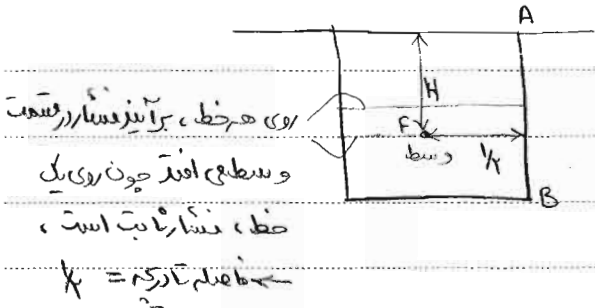 A
H
روی هر خط ، برآیند فشار در قسمت
F
وسط
1/2
وسط می افتد چون روی یک
B
خط ، فشار ثابت است ،
فاصله تا درگه = 1/2